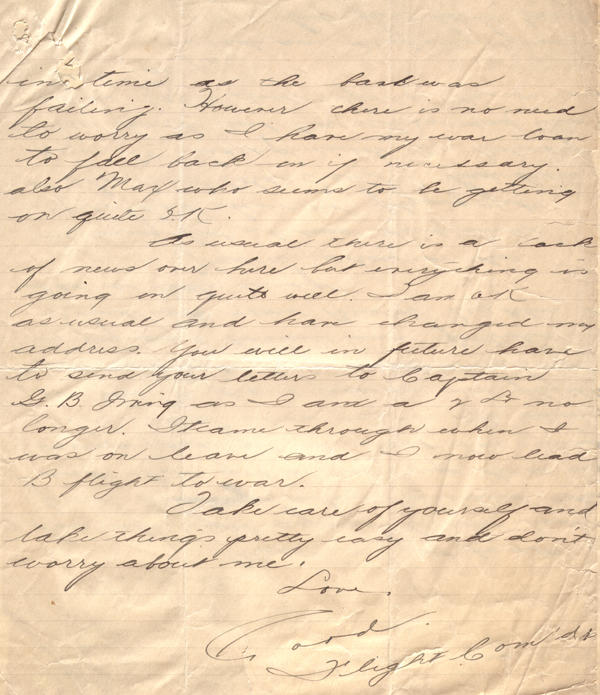 in time as the bank was
failing. However there is no need
to worry as I have my war loan
to fall back on if necessary.
also Max who seems to be getting
on quite O.K.
As usual there is a lack
of news over here but everything is
going on quite well. I am OK
as usual and have changed my
address. You will in future have
to send your letters to Captain
G. B. Irving as I and a 2 Lt no
longer. It came through when I
was on leave and I now lead
B flight to war.
Take care of yourself and
take things pretty easy and don't
worry about me.
Love.
Flight Com'dr